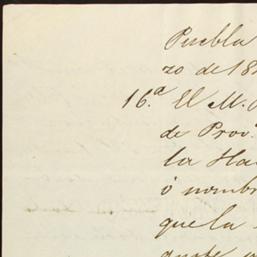 Puebla
zo de 18
16.ª El M.
de Prov.
la Ha
ó nombr
que la